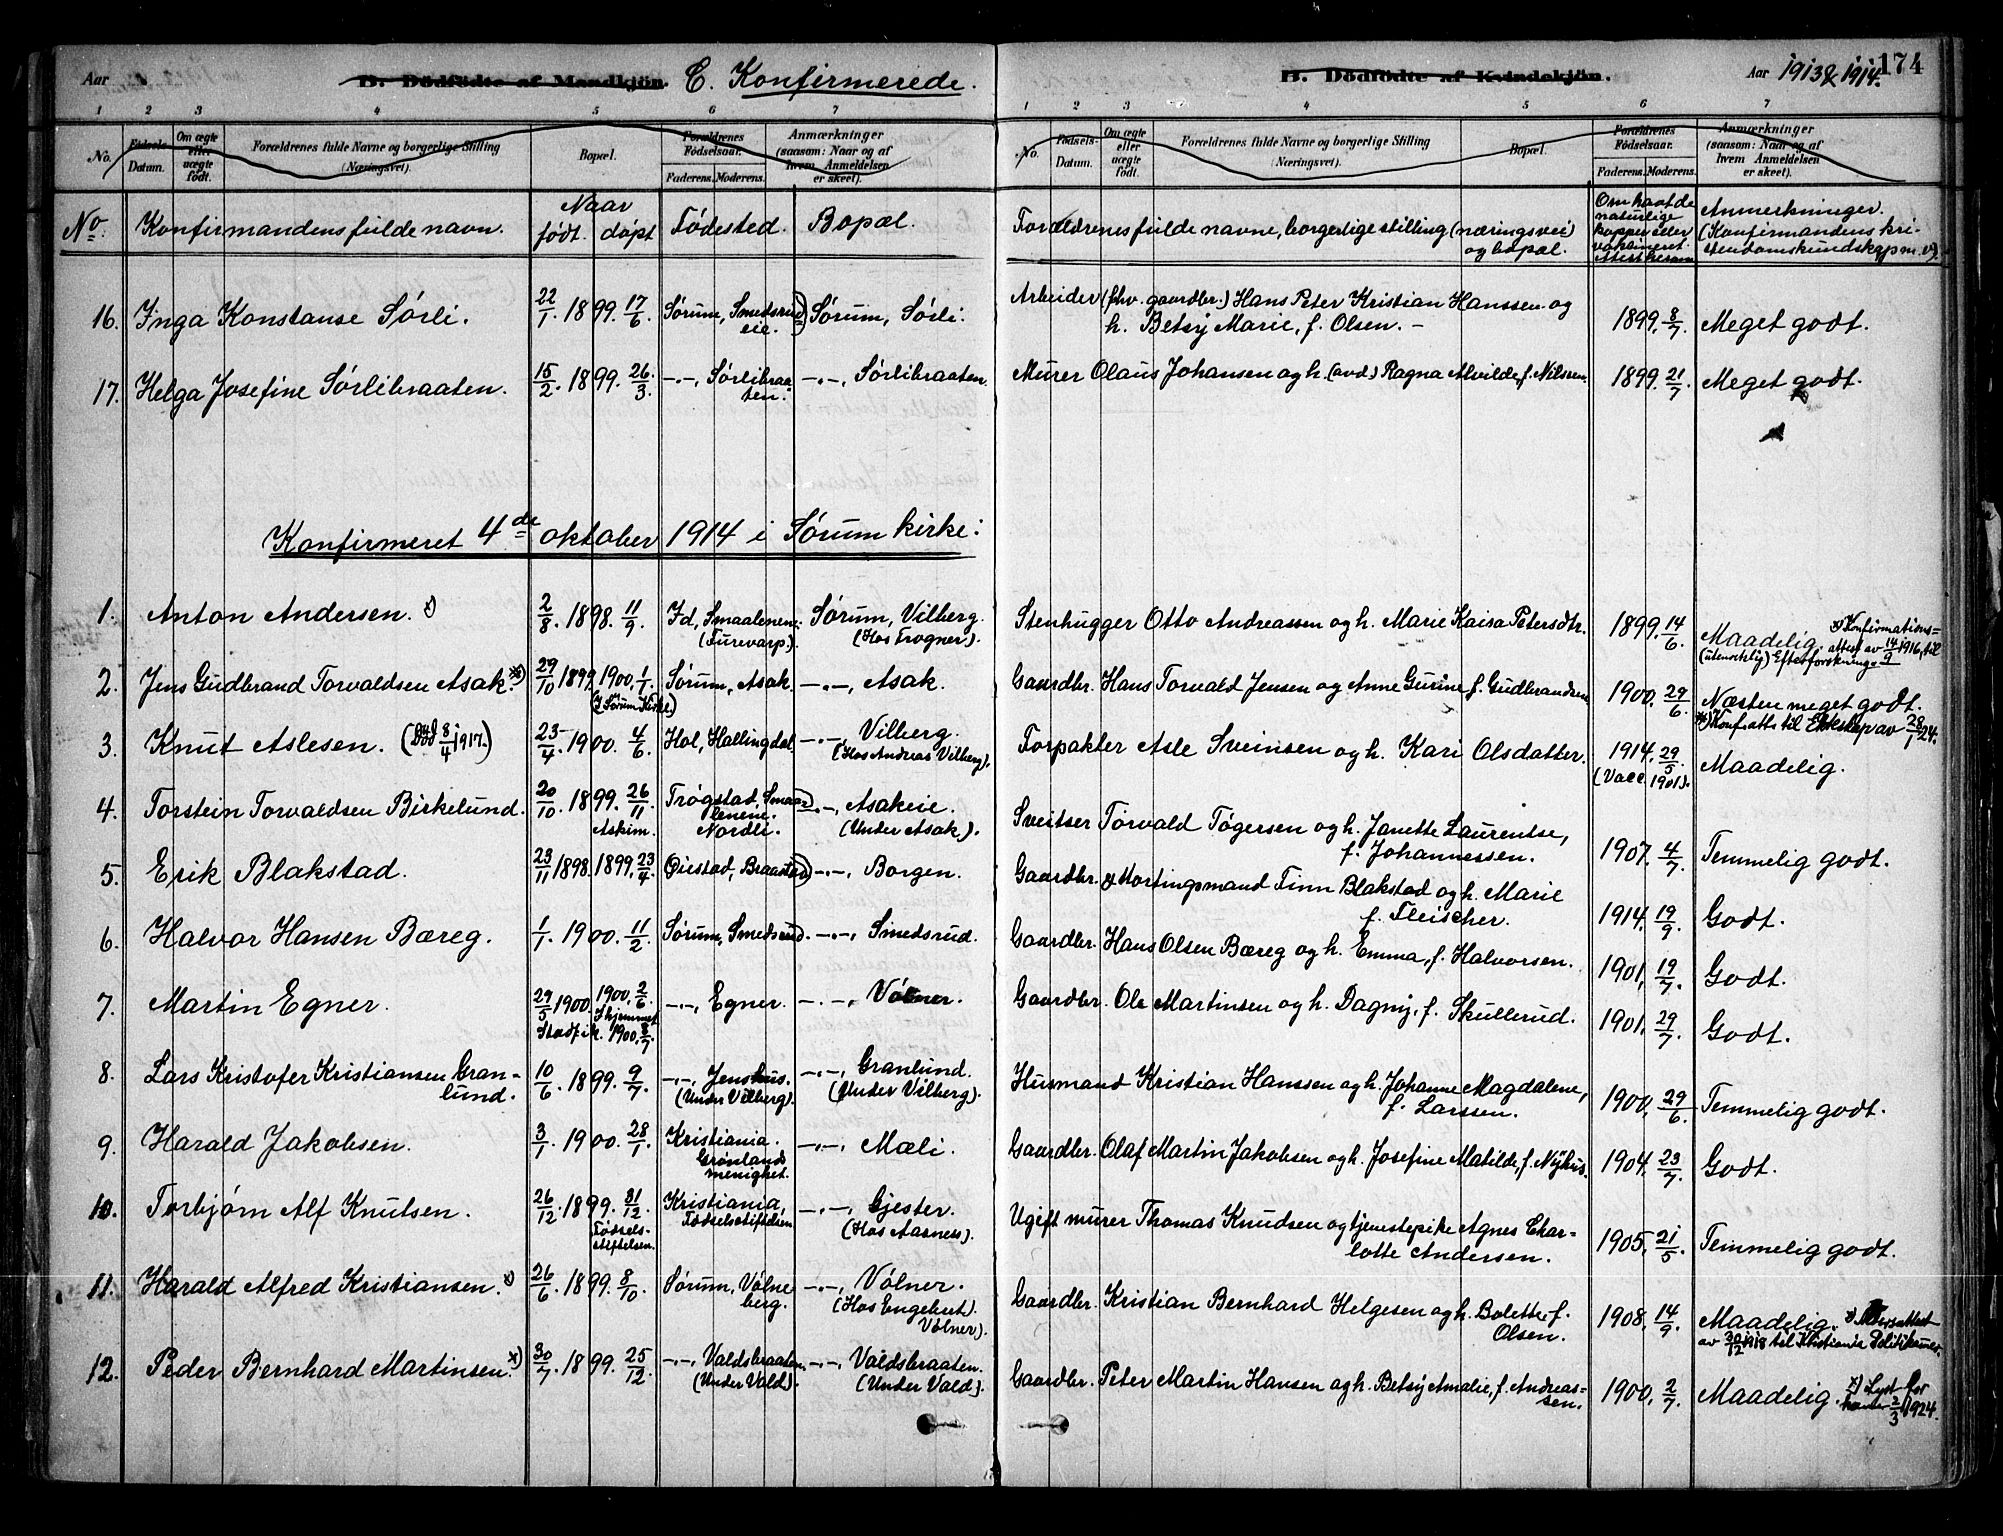 Aar B. Dödfödte af Mandkjön. C. Konfirmerede.
1 2 3 4 5 6 7
No. Fødsels-Datum. Om ægte eller uægte født. Forældrenes fulde Navne og borgerlige Stilling (Næringsvei). Bopæl. Forældrenes Fødselsaar. Faderens. Moderens. Anmærkninger (saasom: Naar og af hvem Anmeldelsen er skeet).
No. Konfirmandens fulde navn. Naar født. døpt Fødested. Bopæl.
16. Inga Konstanse Sørli. 22/1. 1899. 17/6. Sørum, Smedsrudeie. Sørum, Sørli.
17. Helga Josefine Sørlibraaten. 15/2. 1899. 26/3. -"-, Sørlibraaten. -"-, Sørlibraaten.
Konfirmeret 4de oktober 1914 i Sørum kirke:
1. Anton Andersen. x) 2/8. 1898. 11/9. Id, Smaalenene. (Furevarp). Sørum, Vilberg. (Hos Trogner).
2. Jens Gudbrand Torvaldsen Asak. *) 29/10 1899. 1900. 1/1. (I Sørum Kirke.) Sørum, Asak. -"-, Asak.
3. Knut Aslesen. (Død 8/4 1917.) 23/4. 1900. 4/6. Hol, Hallingdal -"-, Vilberg. (Hos Andreas Vilberg).
4. Torstein Torvaldsen Birkelund. 20/10. 1899. 26/11 Askim. Trøgstad, Smaalenene. Nordli. -"-, Asakeie. (Under Asak).
5. Erik Blakstad. 23/11 1898. 1899. 23/4. Øiestad, Braastad -"-, Borgen.
6. Halvor Hansen Bæreg. 1/1. 1900. 11/2. Sørum, Smedsrud. -"-, Smedsrud.
7. Martin Egner. 29/5 1900. 1900. 2/6. I hjemmet Stadf. i k. 1900. 8/7 -"-, Egner. -"-, Vølner.
8. Lars Kristofer Kristiansen Granlund. 10/6. 1899. 9/7. -"-, Jenshus. (Under Vilberg). -"-, Granlund. (Under Vilberg).
9. Harald Jakobsen. 3/1. 1900. 28/1. Kristiania. Grønlands menighet. -"-, Mæli.
10. Torbjørn Alf Knutsen. 26/12. 1899. 31/12. Fødselsstiftelsen. Kristiania, Fødselsstiftelsen -"-, Gjester. (Hos Aasness).
11. Harald Alfred Kristiansen. x) 26/6. 1899. 8/10. Sørum, Vølneberg. -"-, Vølner. (Hos Engebret Vølner).
12. Peder Bernhard Martinsen. x) 30/7. 1899. 25/12. -"-, Valdsbraaten. (Under Vald). -"-, Valdsbraaten. (Under Vald).
B. Dödfödte af Kvindekjön. Aar 1913 & 1914. 174
1 2 3 4 5 6 7
No. Fødsels-Datum. Om ægte eller uægte født. Forældrenes fulde Navne og borgerlige Stilling (Næringsvei). Bopæl. Forældrenes Fødselsaar. Faderens. Moderens. Anmærkninger (saasom: Naar og af hvem Anmeldelsen er skeet).
Forældrenes fulde navne, borgerlige stilling (næringsvei) og bopæl. Om havt de naturlige kopper eller vaksineret. Anmerkninger. (Konfirmandens kristendomskundskap m. v.)
Arbeider (fhv. gaardbr.) Hans Peter Kristian Hanssen og h. Betsy Marie, f. Olsen. - 1899. 8/7. Meget godt.
Murer Olaus Johansen og h. (avd.) Ragna Alvilde, f. Nilsen. 1899. 21/7. Meget godt.
Stenhugger Otto Andreassen og h. Marie Kaisa Petersdtr. 1899. 14/6. Maadelig. x) Konfirmationsattest av 14/9 1916, til (utenretslig) Efterforskning.
Gaardbr. Hans Torvald Jensen og Anne Gurine f. Gudbrandsen 1900. 29/6. Næsten meget godt. *) Konf.atts til Ekteskap av 28/1 24.
Forpakter Asle Sveinsen og h. Kari Olsdatter. 1914. 29/5 (Vacc. 1901). Maadelig.
Sveitser Torvald Tøgersen og h. Janette Laurentse, f. Johannessen. 1907. 4/7. Temmelig godt.
Gaardbr. stortingsmand Finn Blakstad og h. Marie f. Fleischer. 1914. 19/9. Godt.
Gaardbr. Hans Olsen Bæreg og h. Emma, f. Halvorsen. 1901. 19/7. Godt.
Gaardbr. Ole Martinsen og h. Dagny, f. Skullerud. 1901. 29/7. Godt.
Husmand Kristian Hanssen og h. Johanne Magdalene, f. Larssen. 1900. 29/6. Temmelig godt.
Gaardbr. Olaf Martin Jakobsen og h. Josefine Matilde, f. Nyhus. 1904. 23/7. Godt.
Ugift murer Thomas Knudsen og tjenestepike Agnes Charlotte Andersen. 1905. 21/5. Temmelig godt.
Gaardbr. Kristian Bernhard Helgesen og h. Bolette, f. Olsen. 1908. 14/9. Maadelig. x) av 30/12 1918 til Kristiania Politikamer.
Gaardbr. Peter Martin Hansen og h. Betsy Amalie, f. Andreassen. 1900. 2/7. Maadelig. x) Lyst for 2/3 1924.